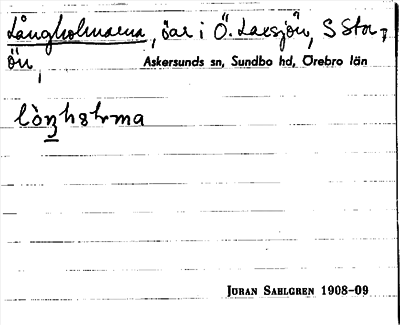 Långholmarna, öar i Ö. Laxsjön, S Stor-
ön,
Askersunds sn, Sundbo hd, Örebro län
JÖRAN SAHLGREN 1908-09